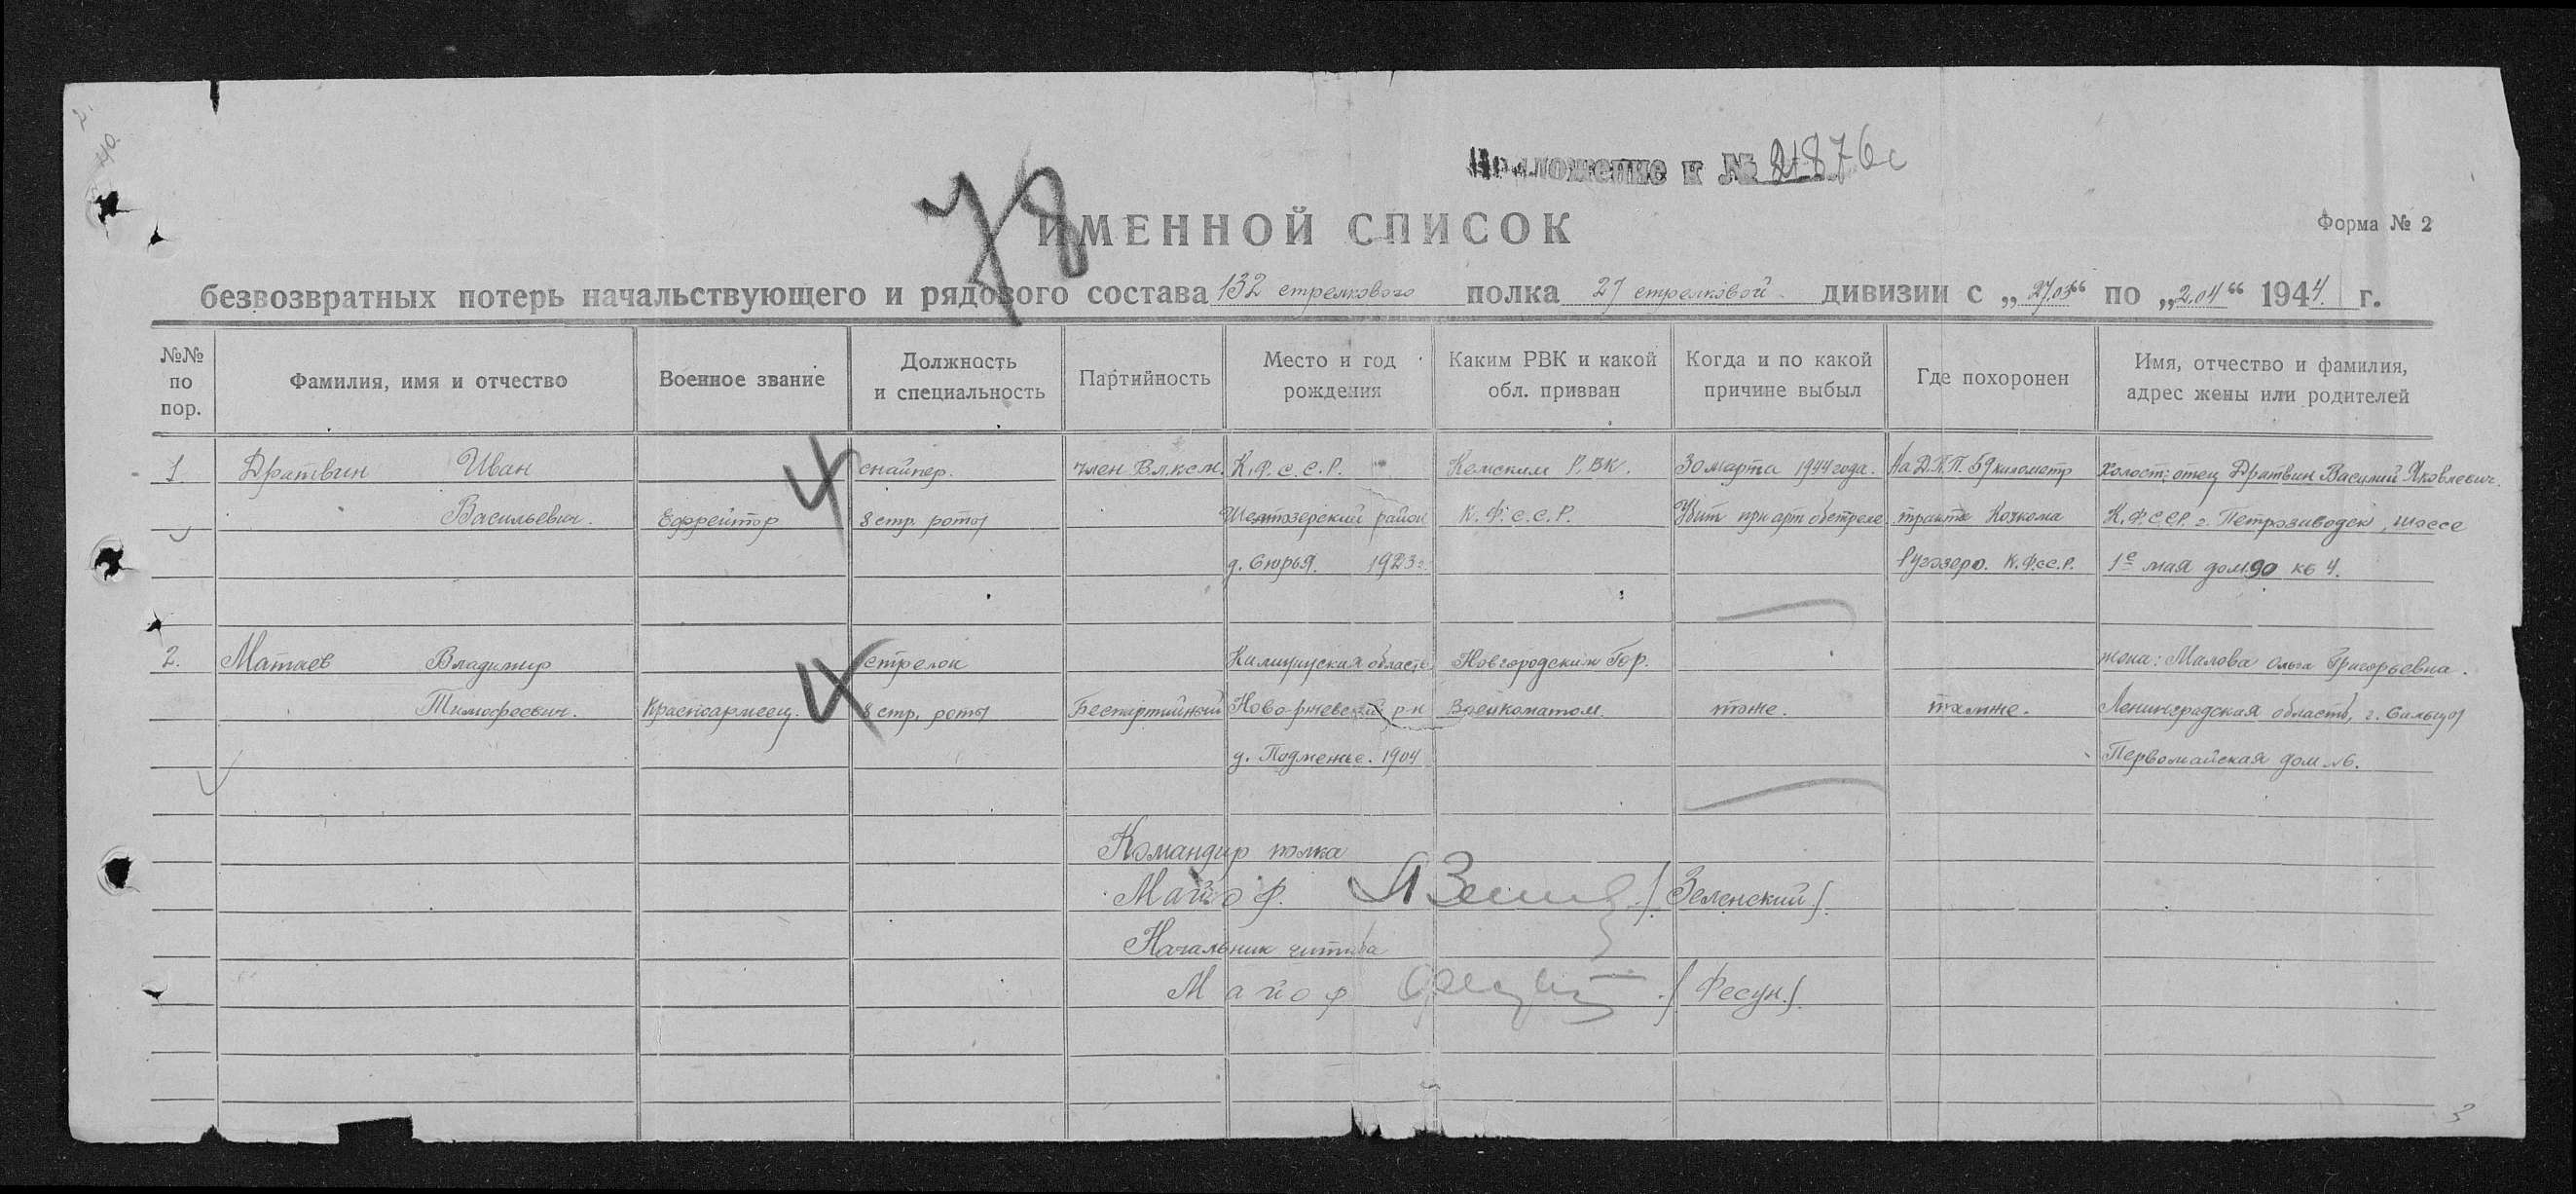 Приложение к № 21876с
78
ИМЕННОЙ СПИСОК
Форма № 2
безвозвратных потерь начальствующего и рядового состава 132 стрелкового полка 27 стрелковой дивизии с „27.03“ по „2.04“ 1944 г.
№№ по пор.
Фамилия, имя и отчество
Военное звание
Должность и специальность
Партийность
Место и год рождения
Каким РВК и какой обл. призван
Когда и по какой причине выбыл
Где похоронен
Имя, отчество и фамилия, адрес жены или родителей
1. Дратвин Иван снайпер. член ВЛКСМ. К.Ф.С.С.Р. Кемским Р.ВК. 30 марта 1944 года. На Д.П.П. 59 километр холост; отец Дратвин Василий Яковлевич.
Васильевич. Ефрейтор 8 стр. роты Шелтозерский район К.Ф.С.С.Р. Убит при арт обстреле тракта Кочкома К.Ф.С.С.Р. г. Петрозаводск, шоссе
д. Сюрья. 1923г. Ругозеро. К.Ф.С.С.Р. 1е мая дом 90 кв 4.
2. Матаев Владимир стрелок область Новгородским Гор. жена: Малова Ольга Григорьевна.
Тимофеевич. Красноармеец. 8 стр. роты Беспартийный Новоржевский р-н Военкоматом. тоже. также. Ленинградская область, г. Сольцы
д. Подмежье. 1904 Первомайская дом 16.
Командир полка
Майор /Зеленский/.
Начальник штаба
Майор /Фесун./
3